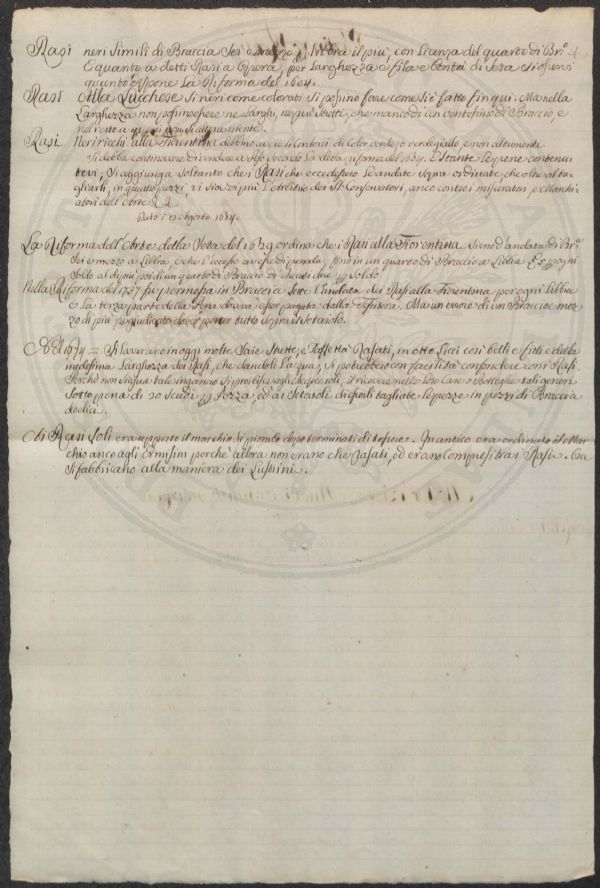 Rasi neri simili di Braccia Sei e mezzo p. Libbra il più, con Licenza del quarto di Br.o
E quanto a detti Rasi a Opera, per Larghezza e fila e bontà di Seta si osservi
quanto dispone La Riforma del 1604.
Rasi alla Lucchese Si neri come colorati Si possino fare come si è fatto fin qui. Ma nella
Larghezza non possino essere ne Larghi, ne più Stretti, che manco di un ventesimo di Braccio, e
nel resto a
Rasi Neri ricchi alla Fiorentina debbino avere li Cordoni di Color verde, o verdegiallo, e non altrimente.
Si debba continovare di vendere a Peso Secondo La detta riforma del
Si aggiunga Soltanto che i Rasi che eccedessero Le andate Sopra ordinate, che oltre al ta-
gliarli, in quattro pezzi, vi Sia di più L'Arbitrio dei SS.i Conservatori, anco contro i misuratori, e Marchi-
atori dell'Arte
Dato i 12 Agosto 1634.
La Riforma dell'Arte della Seta del 1629 ordina che i Rasi alla Fiorentina sieno d'andata di Br.a
Sei e mezzo a Libbra, e che l'eccesso avesse di pena la, fino in un quarto di Braccio a Libbra ogni
Soldo al di più poi di un quarto di Braccio di due Soldo.
Nella Riforma del 1737 fu permessa in Braccia Sette L'andata dei Rasi alla Fiorentina per ogni Libbra
e La terza parte della Pena doveva esser pagata dalla Tessitora. Ma un errore di un Braccio e mez-
zo di più pregiudicato dover portar tutto Sopra il Setaiolo.
Nel 1674 = Si lavorano in oggi molte Saie Strette, e Taffettà Rasati, in otto Licci così belli e fitti e della
medesima Larghezza dei Rasi, che dandoli L'acqua, Si potrebbero con facilità confondere con i Rasi.
Perchè non Segua tale inganno Si proibisce agli Setaioli, il ricevere nelle Loro Case o Botteghe tali generi
Sotto pena di 20 Scudi p Pezza, ed ai Setaioli di essergli tagliate Le pezze in pezzi di Braccia
dodici.
Ai Rasi Soli era apposto il marchio di piombo dopo terminati di tessere. In antico era ordinato il Mar-
chio anco agli Ermisini perchè allora non erano che Rasati, ed erano Compresi tra i Rasi. Ora
Si fabbricano alla maniera dei Lustrini.